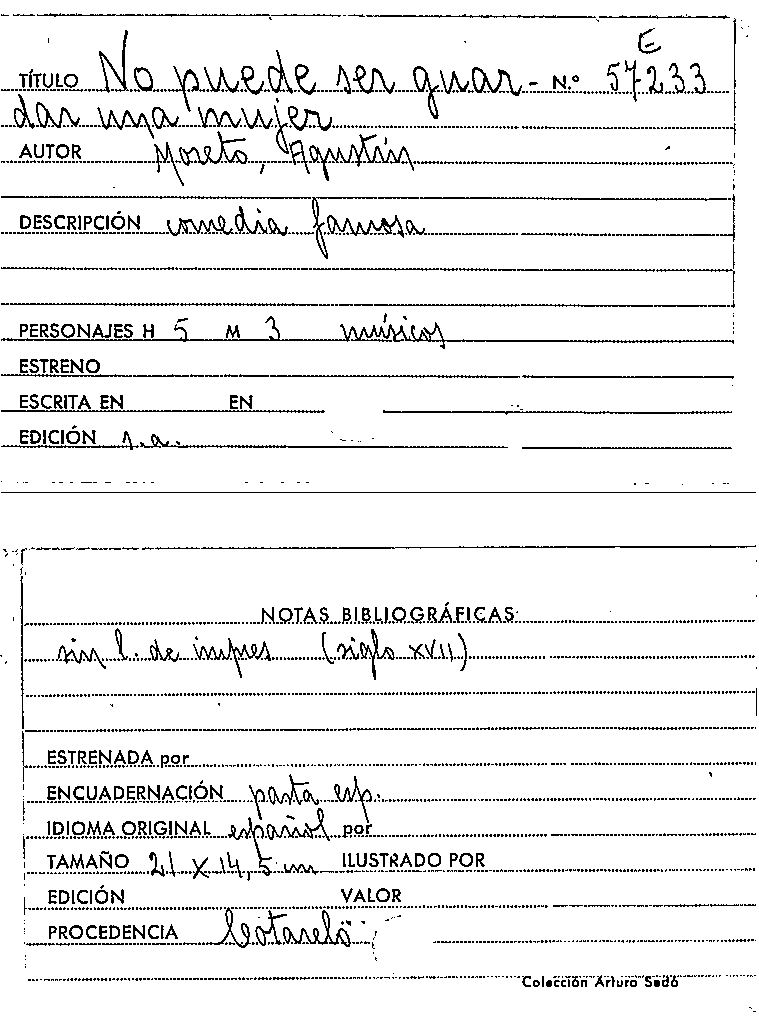 E
TÍTULO No puede ser guar- N.º 57233
dar una mujer
AUTOR Moreto, Agustín
DESCRIPCIÓN comedia famosa
PERSONAJES H 5 M 3 músicos
ESTRENO
ESCRITA EN EN
EDICIÓN s.a.
NOTAS BIBLIOGRÁFICAS
sin l. de impres (siglo XVII)
ESTRENADA por
ENCUADERNACIÓN pasta esp.
IDIOMA ORIGINAL español por
TAMAÑO 21 x 14,5 cm ILUSTRADO POR
EDICIÓN VALOR
PROCEDENCIA Cotarelo
Colección Arturo Sedó